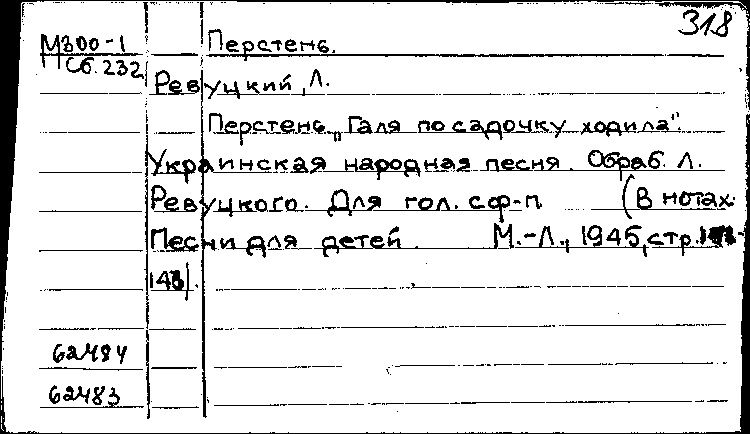 318
М300-1
Сб. 232
Перстень.
Ревуцкий, Л.
Перстень. „Галя по садочку ходила".
Украинская народная песня. Обраб. Л.
Ревуцкого. Для гол. с ф-п (В нотах:
Песни для детей. М.-Л., 1945, стр.
62484
62483